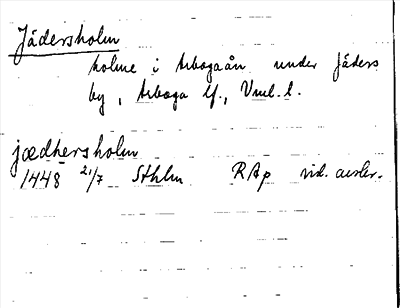 Jädersholm
holme i Arbogaån under Jäders
by, Arboga lf., Vml. l.
jædhersholm
1448 21/7 Sthlm RAp vid. avskr.